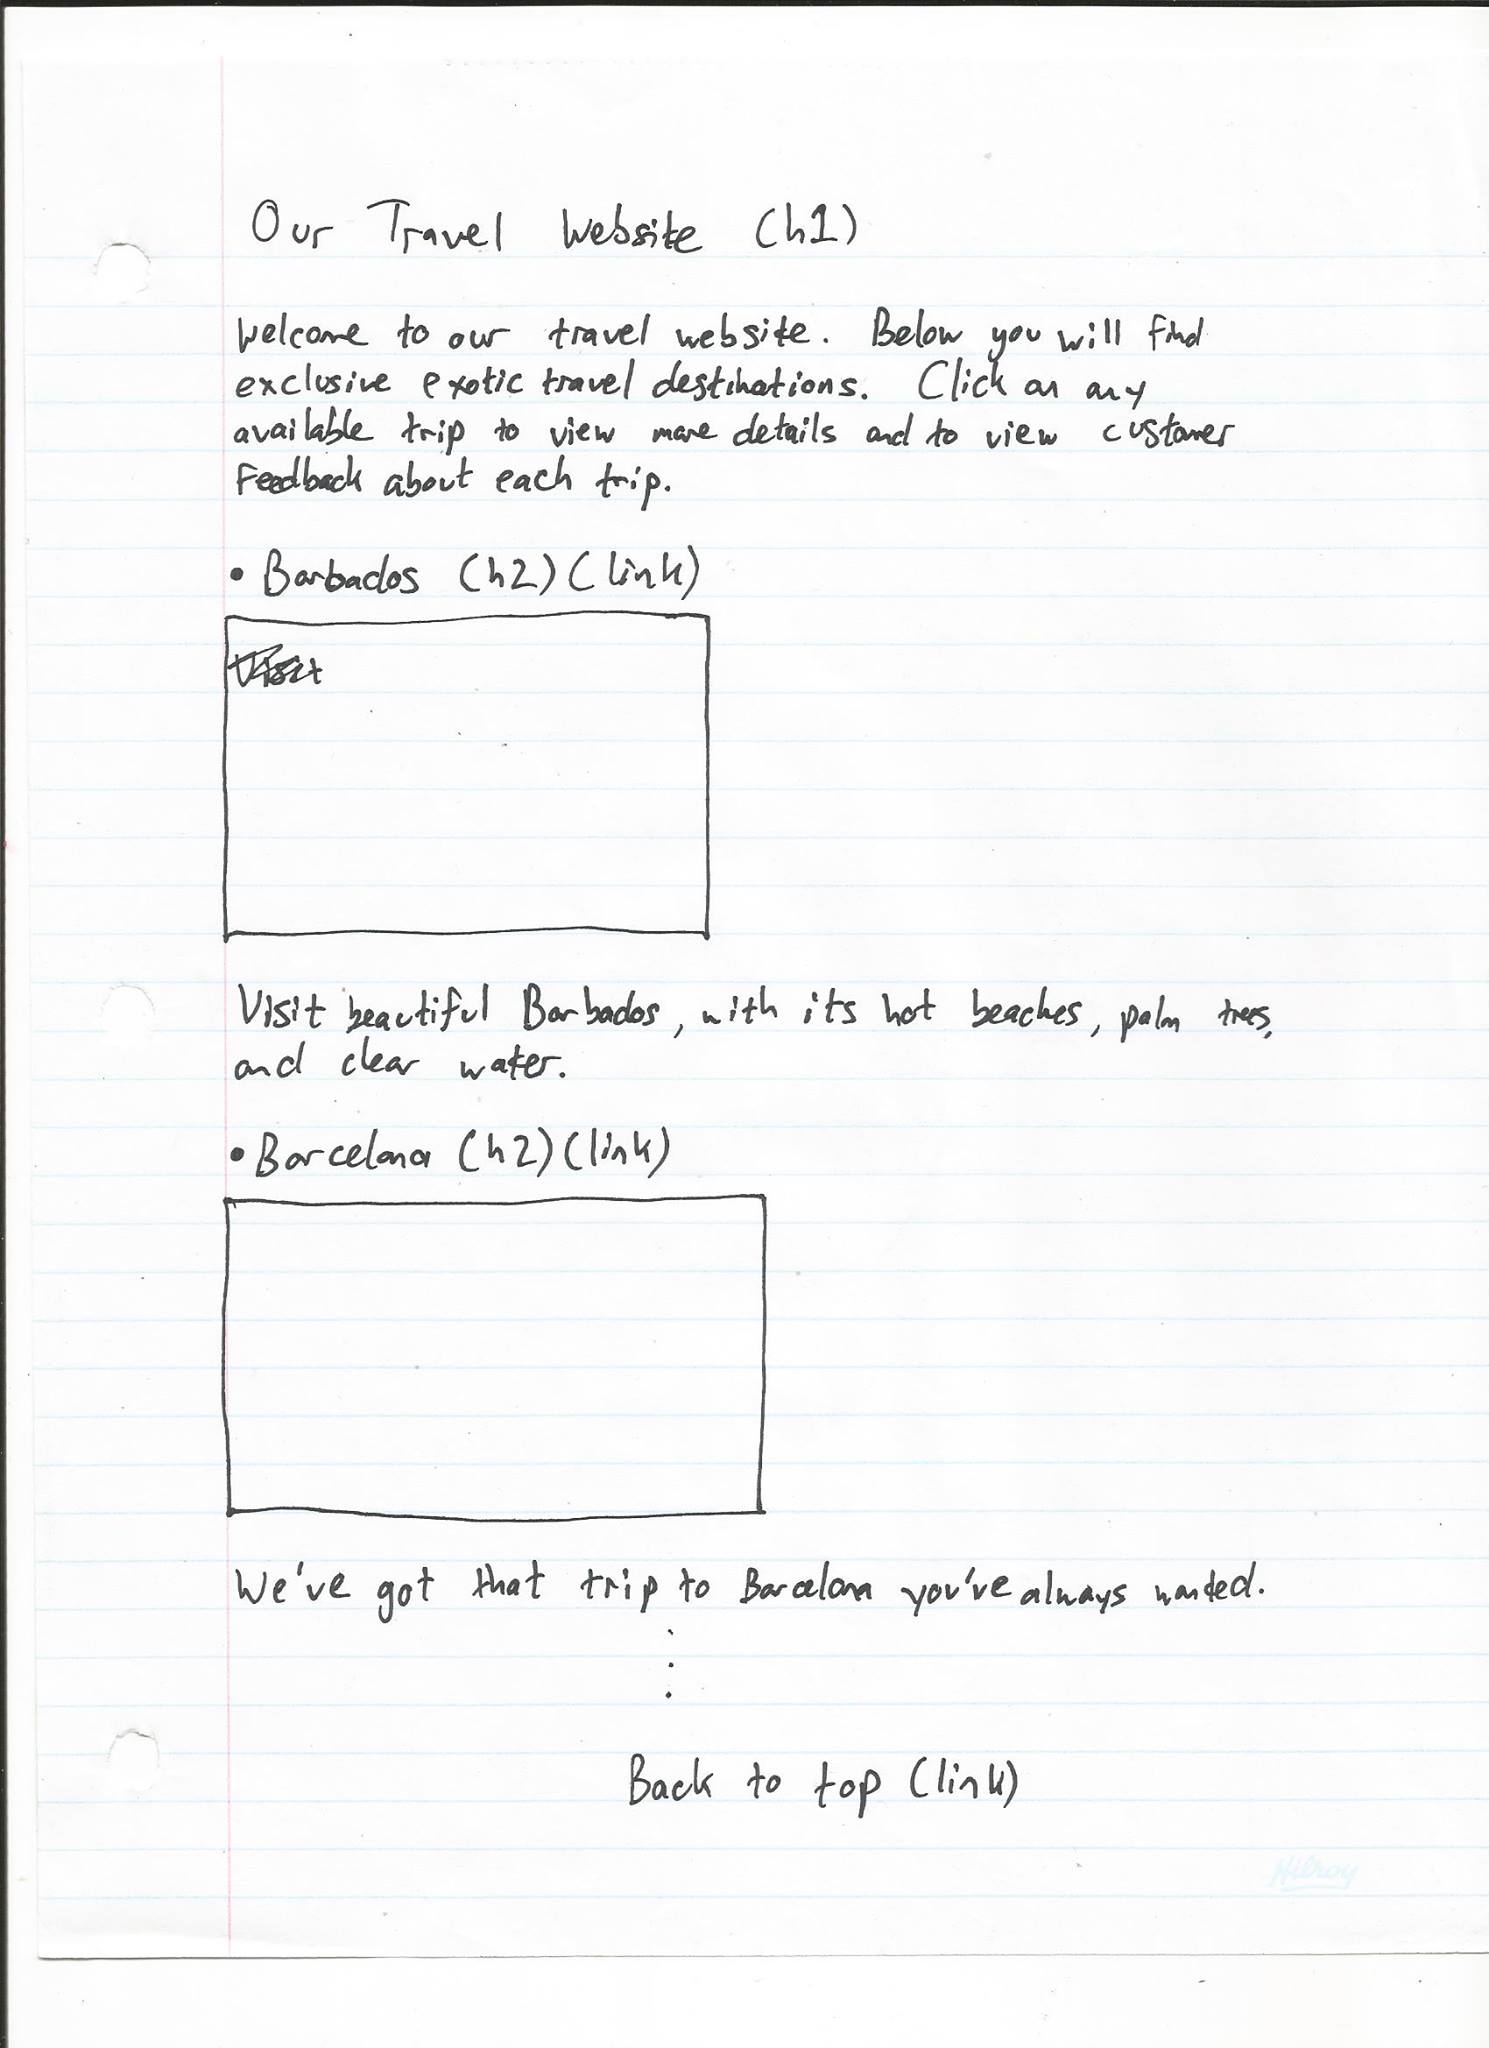 Our Travel Website (h1)
Welcome to our travel website. Below you will find
exclusive exotic travel destinations. Click on any
available trip to view more details and to view customer
Feedback about each trip.
• Barbados (h2) (link)
Visit
Visit beautiful Barbados, with its hot beaches, palm trees,
and clear water.
• Barcelona (h2) (link)
We've got that trip to Barcelona you've always wanted.
Back to top (link)
Hilroy